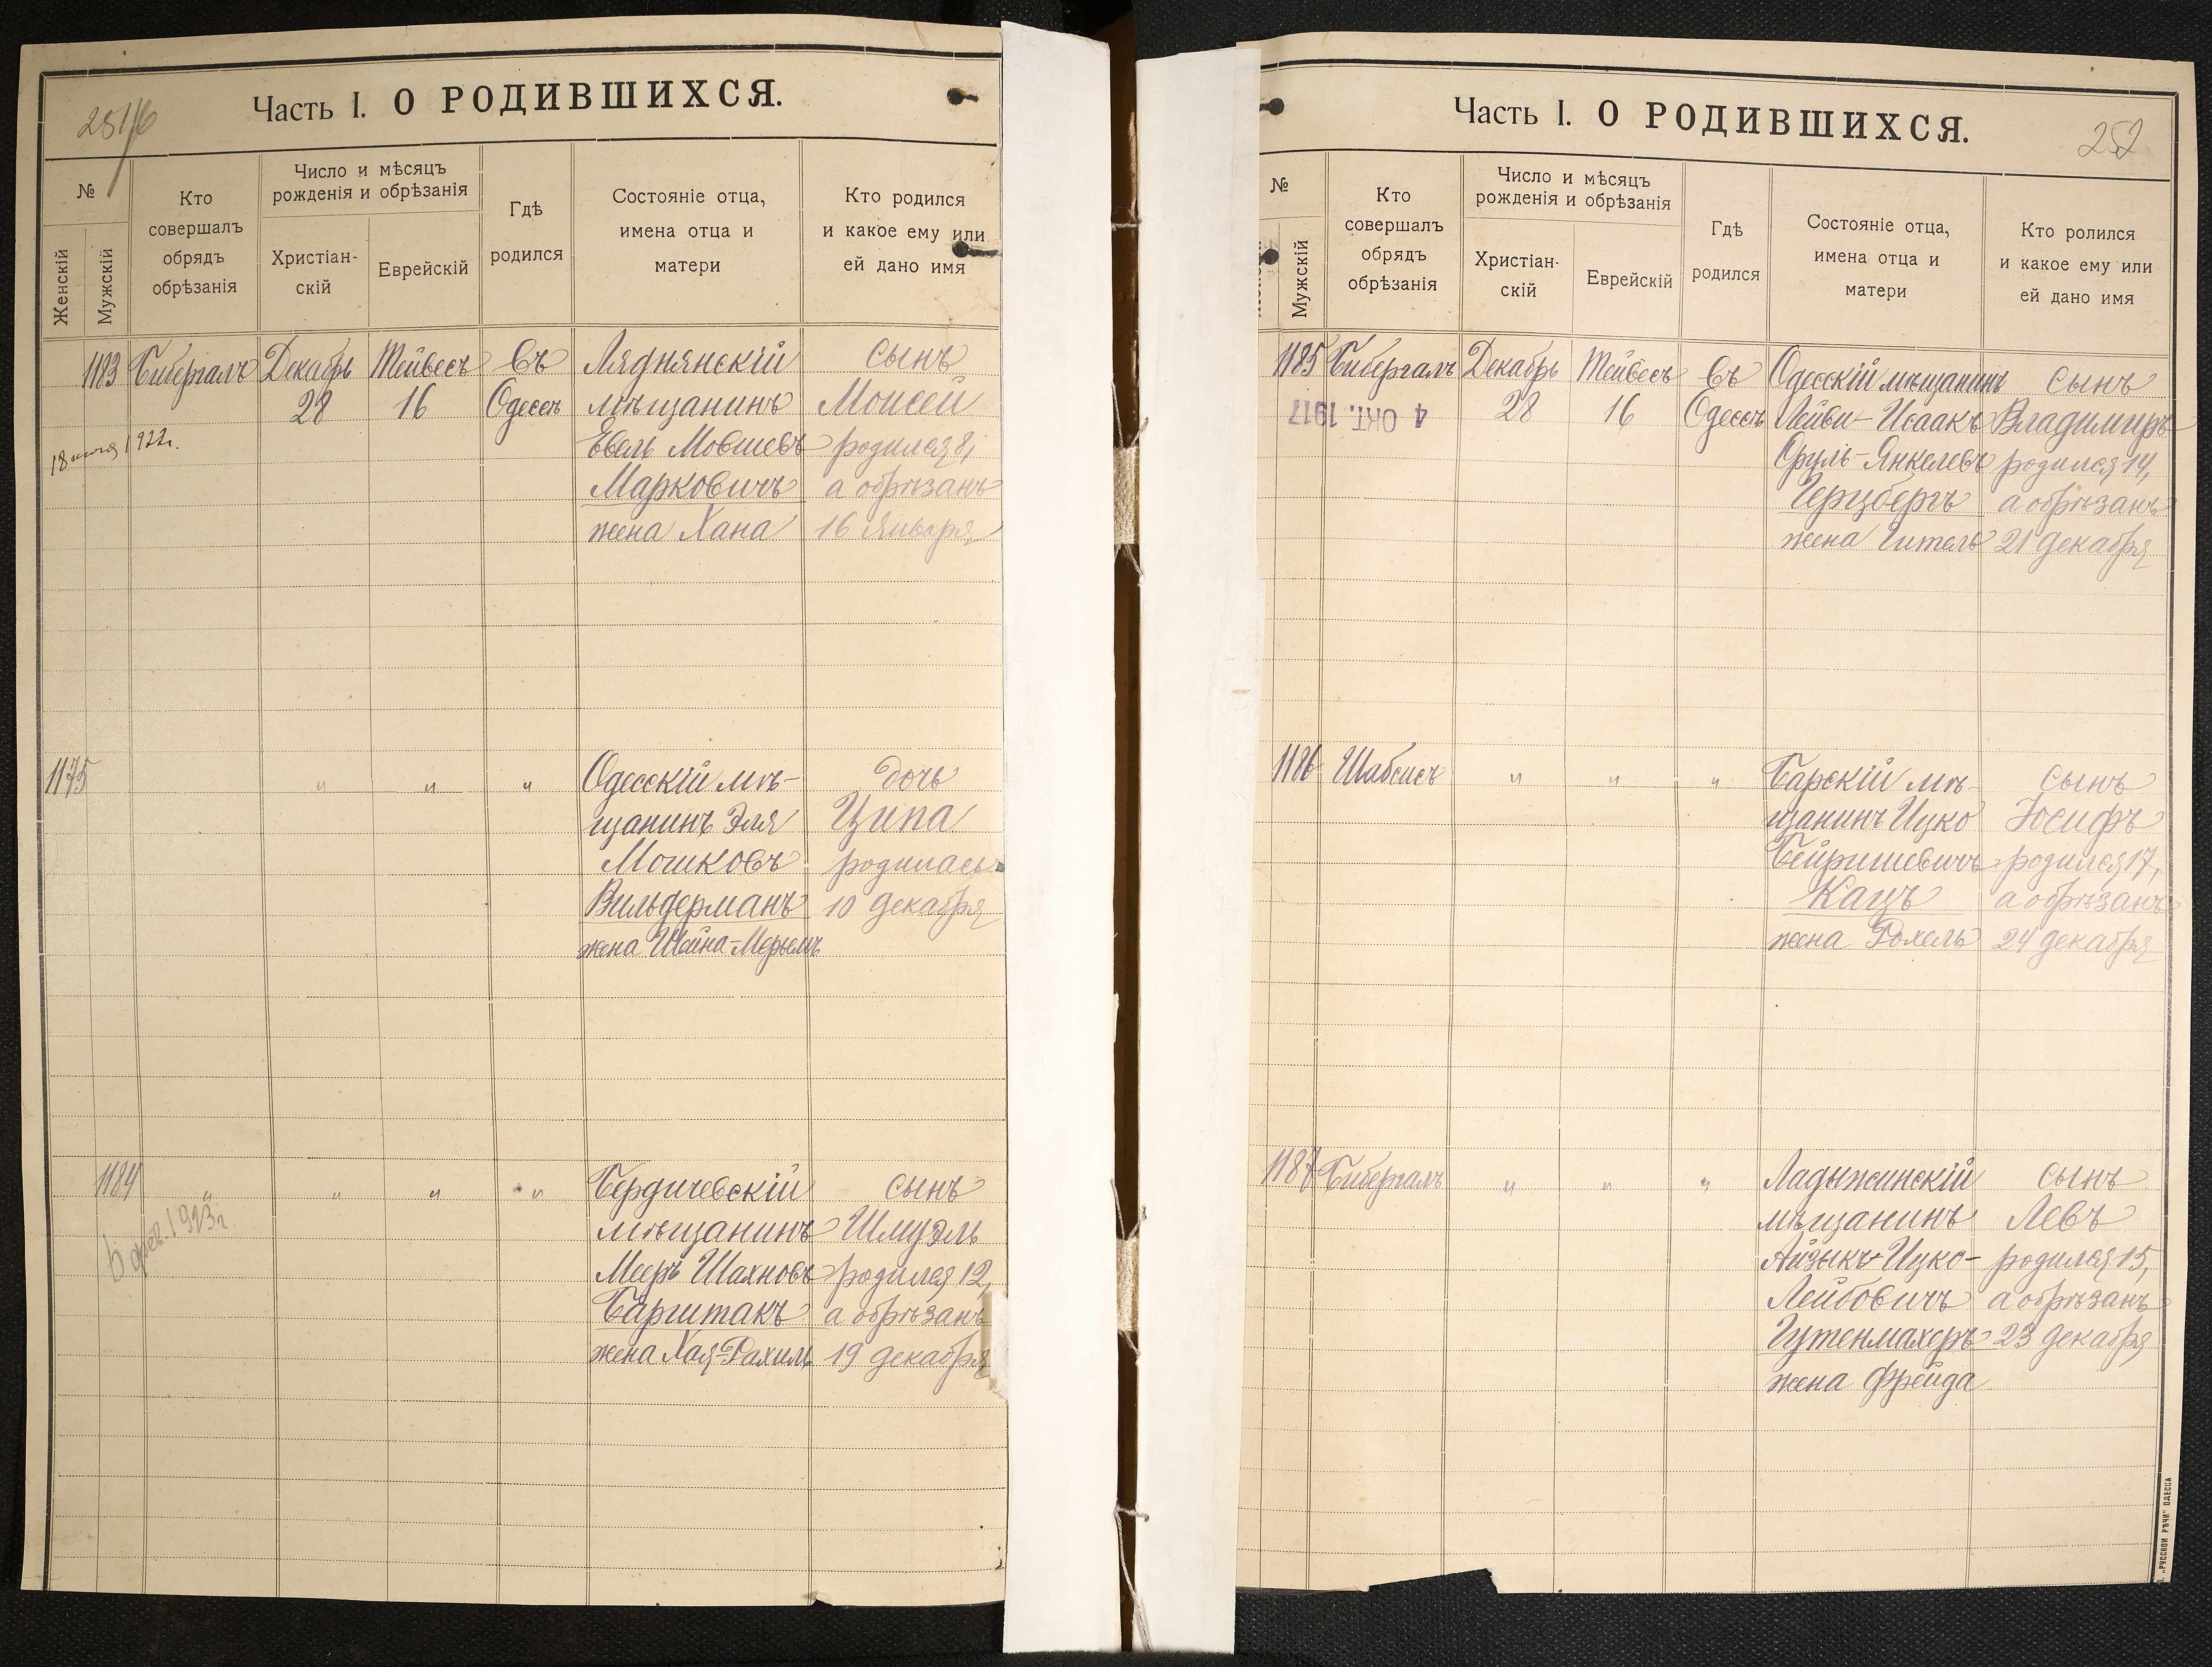 251/б
Часть I. О РОДИВШИХСЯ.
№
Женскій
Мужскій
Кто
совершалъ
обрядъ
обрѣзанія
Число и мѣсяцъ
рожденія и обрѣзанія
Христіан-
скій
Еврейскій
Гдѣ
родился
Состояніе отца,
имена отца и
матери
Кто родился
и какое ему или
ей дано имя
1183 Бибергалъ Декабрь Тейвесъ Въ Ляднянскій сынъ
28 16 Одессѣ мѣщанинъ Моисей
18 1922г. Евель Мовшевъ родился 8,
Марковичъ а обрѣзанъ
жена Хана 16 Января
1175 " " " Одесскій мѣ- дочь
щанинъ Эля Ципа
Мошковъ родилась
Вильдерманъ 10 декабря
жена Шейна-Мерьемъ
1184 " " " " Бердичевскій сынъ
6 фев. 1923г. мѣщанинъ Шмуэль
Мееръ Шахновъ родился 12,
Баргштакъ а обрѣзанъ
жена Хая-Рахиль 19 декабря
Часть I. О РОДИВШИХСЯ.
252
№
Мужскій
Кто
совершалъ
обрядъ
обрѣзанія
Число и мѣсяцъ
рожденія и обрѣзанія
Христіан-
скій
Еврейскій
Гдѣ
родился
Состояніе отца,
имена отца и
матери
Кто ролился
и какое ему или
ей дано имя
1185 Бибергалъ Декабрь Тейвесъ Въ Одесскій мѣщанинъ сынъ
4 ОКТ. 1917 28 16 Одессѣ Лейви-Исаакъ Владимиръ
Сруль-Янкелевъ родился 14,
Герцбергъ а обрѣзанъ
жена Гитель 21 декабря
1186 Шабсисъ " " " Барскій мѣ- сынъ
щанинъ Ицко Іосифъ
Бейришевичъ родился 17,
Кацъ а обрѣзанъ
жена Рохель 24 декабря
1187 Бибергалъ " " " Ладыжинскій сынъ
мѣщанинъ Левъ
Айзыкъ Ицко- родился 15,
Лейбовичъ а обрѣзанъ
Гутенмахеръ 23 декабря
жена Фрейда
„РУССКОЙ РѢЧИ" ОДЕССА